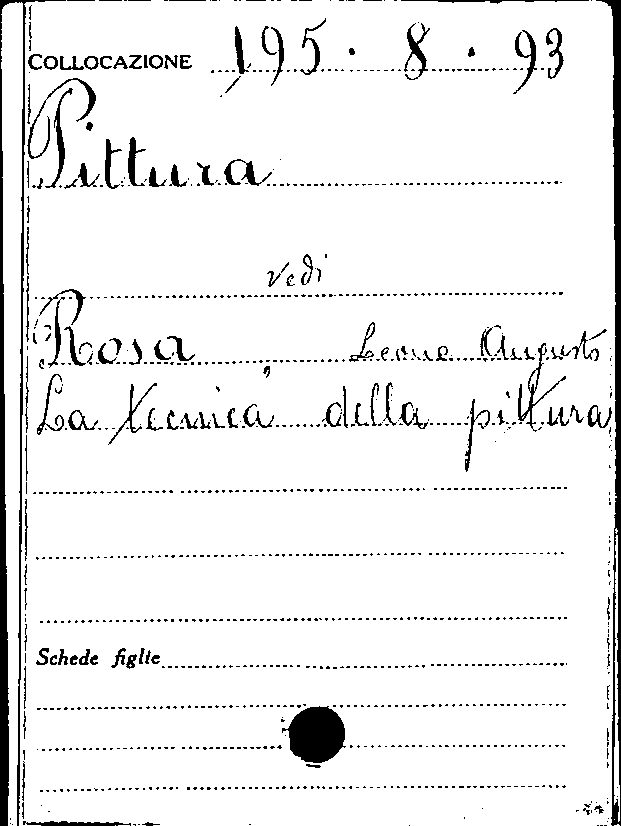 COLLOCAZIONE 195. 8. 93
Pittura
vedi
Rosa, Leone Augusto
La tecnica della pittura
Schede figlie